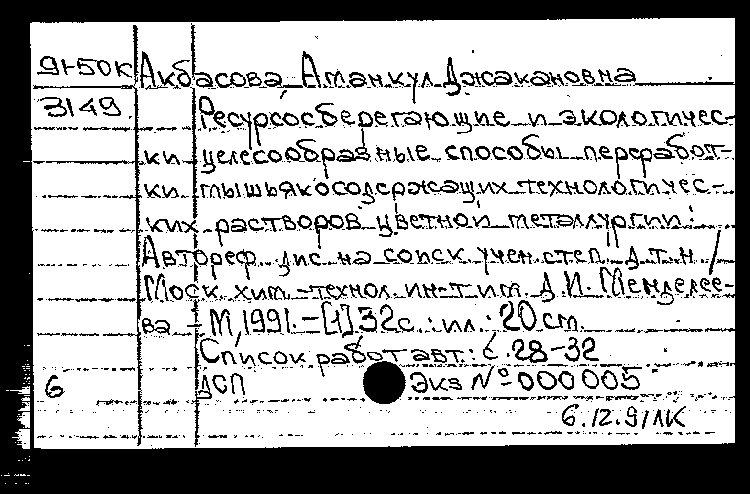 91-50К Акбасова, Аманкул Джакановна
3149 Ресурсосберегающие и экологичес-
ки целесообразные способы переработ-
ки мышьякосодержащих технологичес-
ких растворов цветной металлургии:
Автореф. дис. на соиск. учен. степ. д.т.н /
Моск. хим.-технол. ин-т им. Д.И. Менделее-
ва - М, 1991. - [1], 32с. : ил. ; 20 см.
Список работ авт.: с. 28-32
6 ДСП Экз № 000005
6.12.91 ЛК